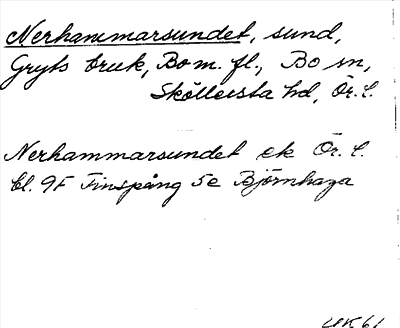 Nerhammarsundet, sund,
Gryts bruk, Bo m. fl., Bo sn,
Sköllersta hd, Ör. l.
Nerhammarsundet ek Ör. l.
bl. 9F Finspång 5e Björnhaga